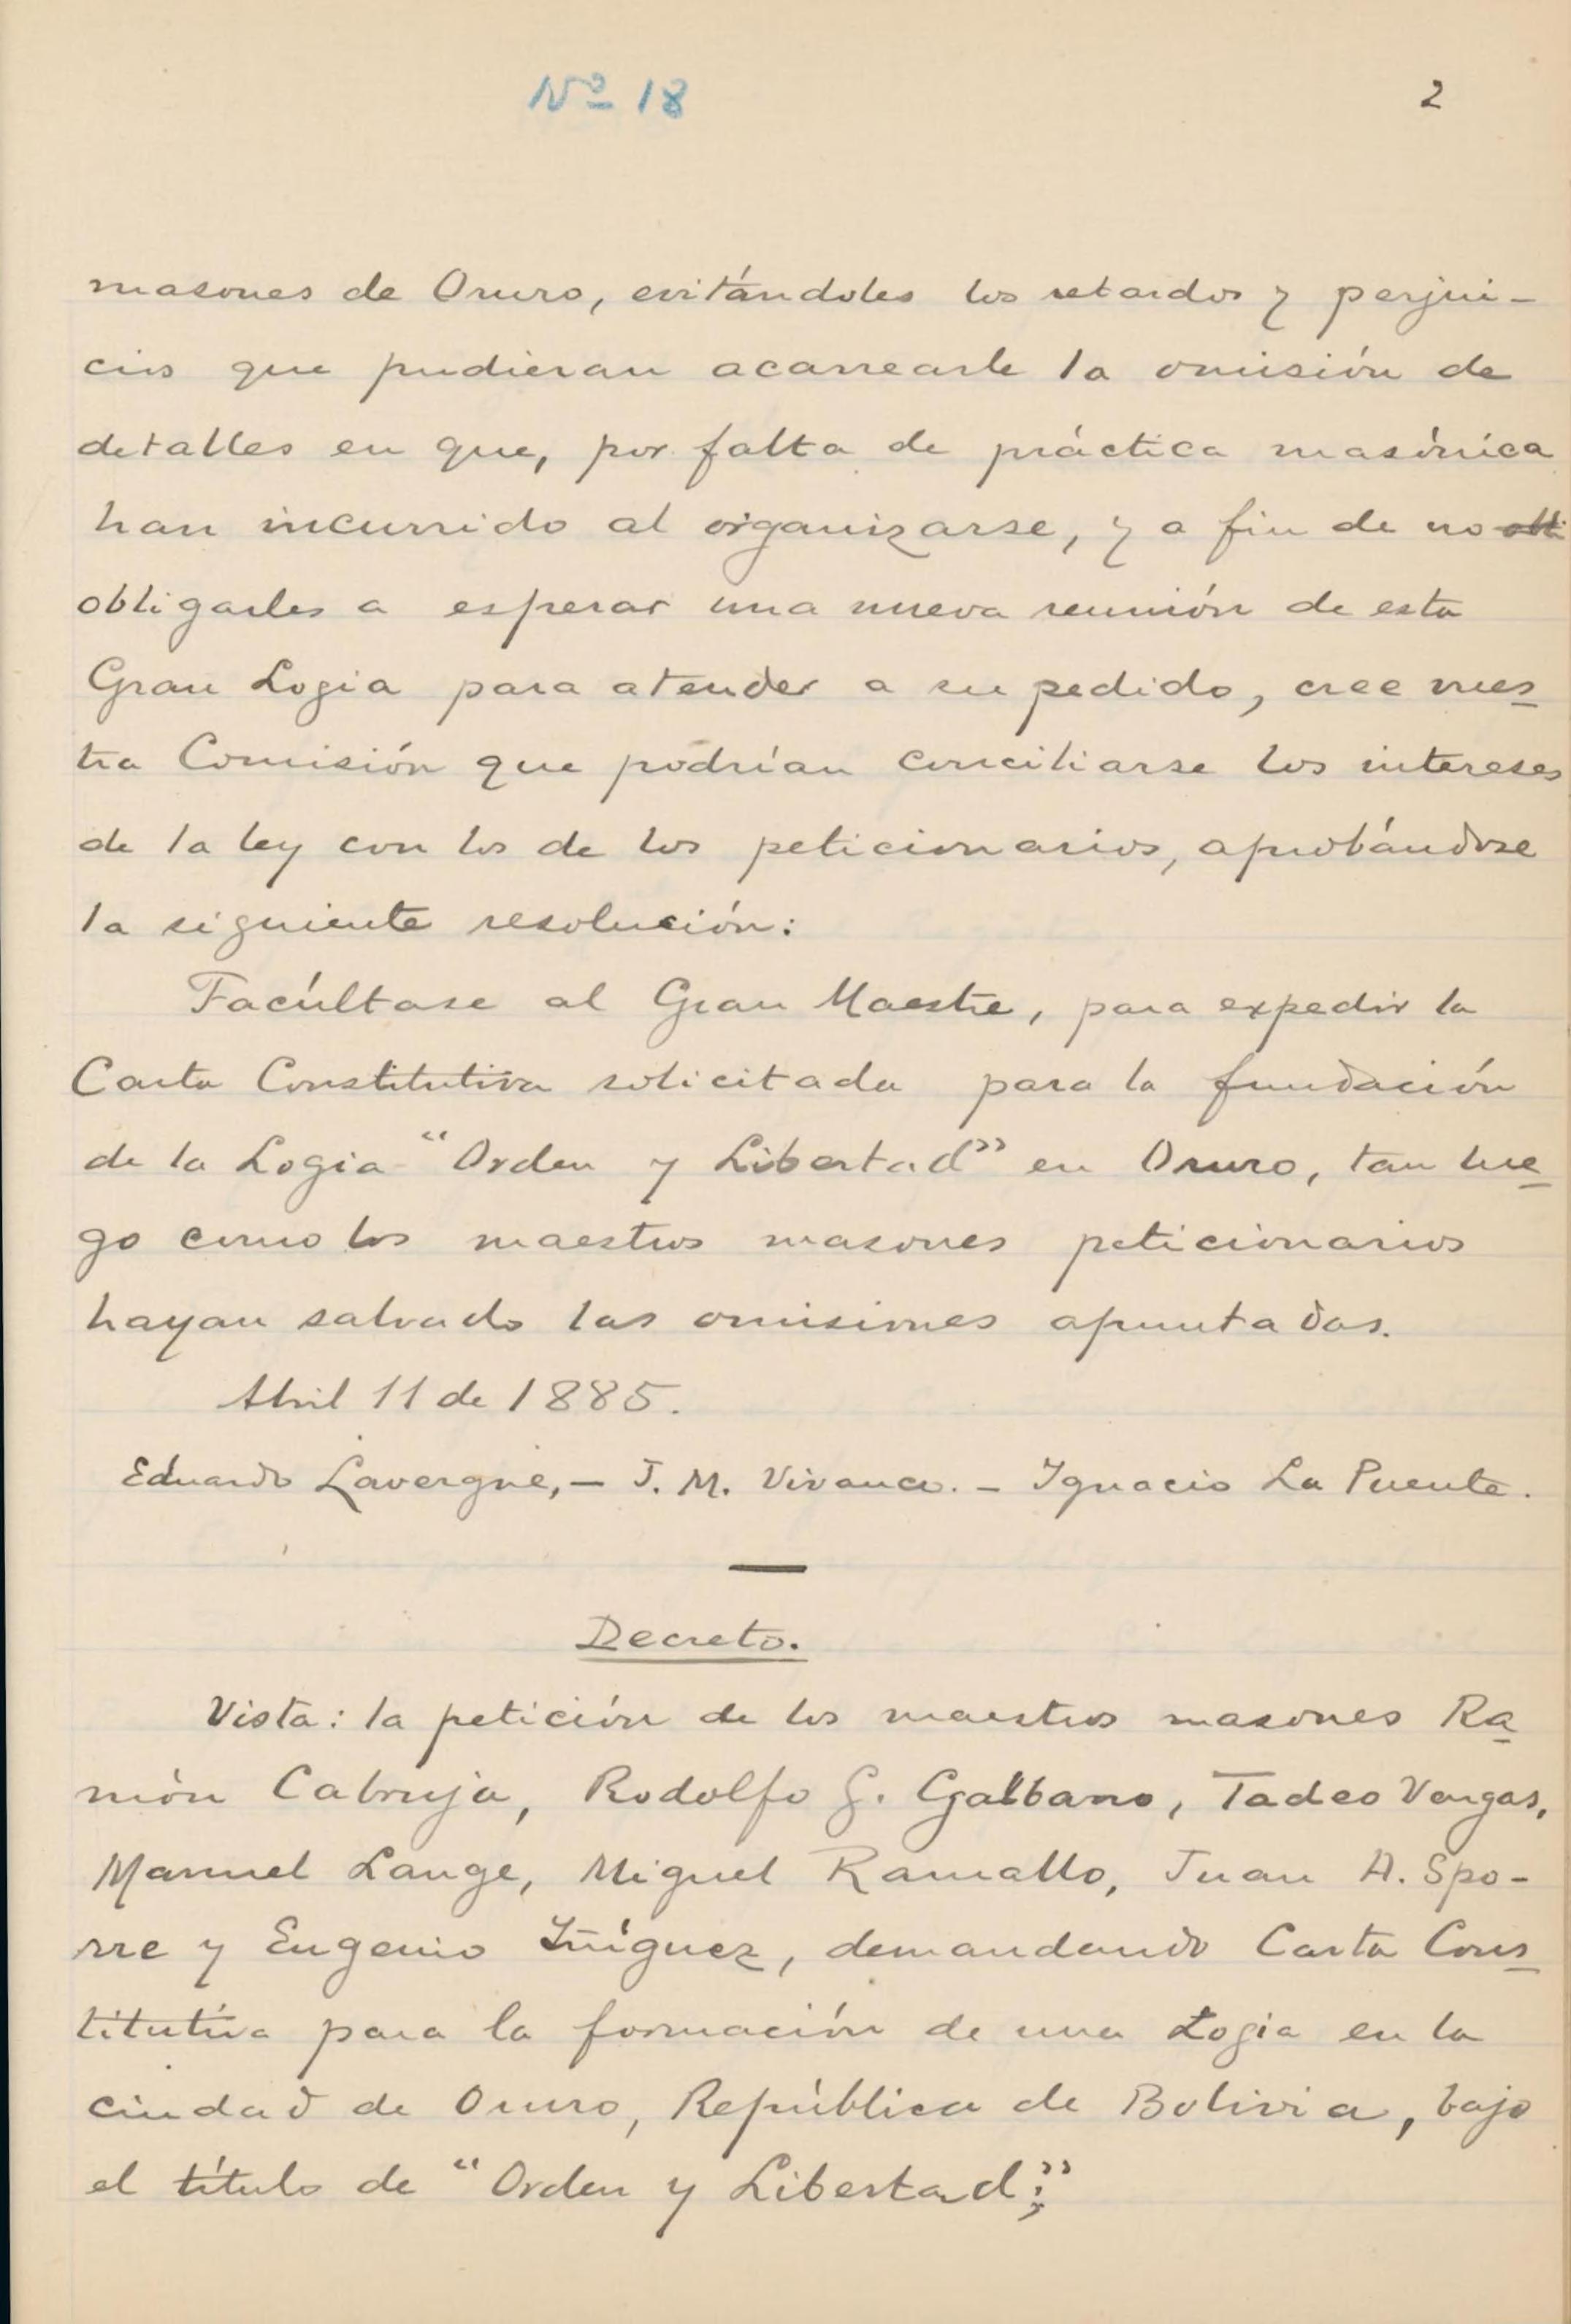 Nº 18
2
masones de Oruro, evitándoles los retardos y perjui-
cios que pudieran acarrearle la omisión de
detalles en que, por falta de práctica masónica
han incurrido al organizarse, y a fin de no obli
obligarles a esperar una nueva reunión de esta
Gran Logia para atender a su pedido, cree vues-
tra Comisión que podrían conciliarse los intereses
de la ley con los de los peticionarios, aprobándose
la siguiente resolución:
Facúltase al Gran Maestre, para expedir la
Carta Constitutiva solicitada para la fundación
de la Logia "Orden y Libertad" en Oruro, tan lue-
go como los maestros masones peticionarios
hayan salvado las omisiones apuntadas.
Abril 11 de 1885.
Eduardo Lavergne,- J. M. Vivanco. - Ignacio La Puente.
Decreto.
Vista: la petición de los maestros masones Ra-
món Cabruja, Rodolfo G. Galbano, Tadeo Vargas,
Manuel Lange, Miguel Ramallo, Juan A. Spo-
rre y Eugenio Iñíguez, demandando Carta Cons-
titutiva para la formación de una Logia en la
ciudad de Oruro, República de Bolivia, bajo
el título de "Orden y Libertad;"